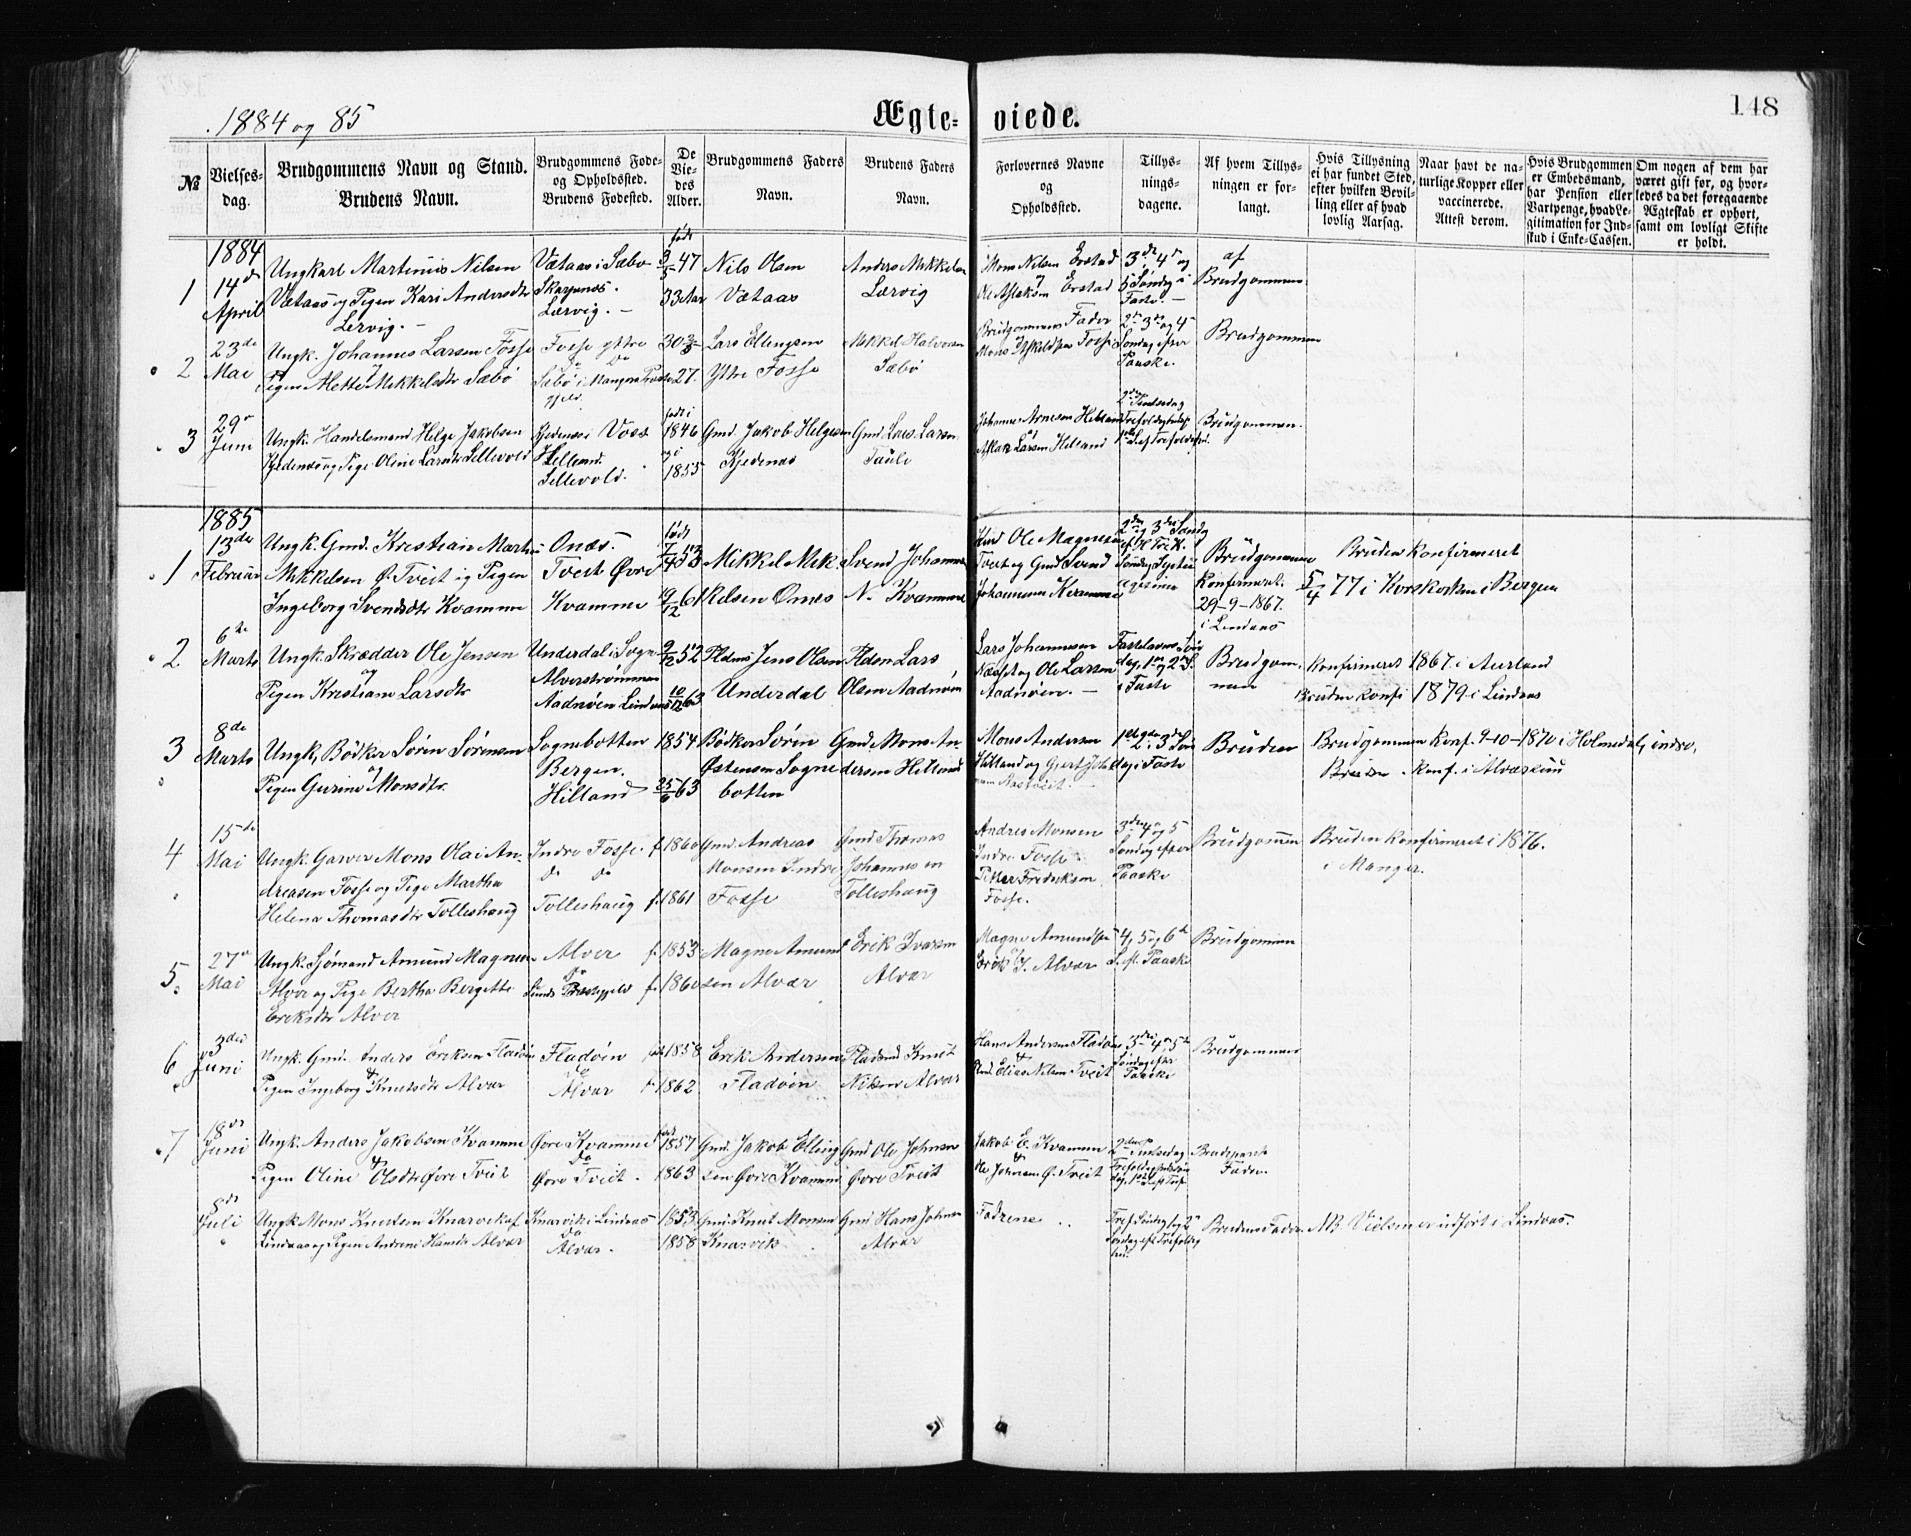 1884 og 85
Ægte-
viede.
148
№
Vielses-
dag.
Brudgommens Navn og Stand.
Brudens Navn.
Brudgommens Føde-
og Opholdssted.
Brudens Fødested.
De
Vie-
des
Alder.
Brudgommens Faders
Navn.
Brudens Faders
Navn.
Forlovernes Navne
og
Opholdssted.
Tillys-
nings-
dagene.
Af hvem Tillys-
ningen er for-
langt.
Hvis Tillysning
ei har fundet Sted,
efter hvilken Bevil-
ling eller af hvad
lovlig Aarsag.
Naar havt de na-
turlige Kopper eller
vaccinerede.
Attest derom.
Hvis Brudgommen
er Embedsmand,
har Pension eller
Vartpenge, hvad Le-
gitimation for Ind-
skud i Enke-Cassen.
Om nogen af dem har
været gift før, og hvor-
ledes da det foregaaende
Ægteskab er ophørt,
samt om lovligt Skifte
er holdt.
1884
1
14de
April
Ungkarl Martinus Nilsen
Vætaas og Pigen Kari Andersdtr
Lervig. –
Vætaas i Sæbø
Skarpenes.
Lervig. –
født
3/5 47
33 Aar
Nils Olsen
Vætaas
Anders Mikkelsen
Lervig
Mons Nilsen Erstad
og
Ole Aslaksen Erstad
3de, 4de og
5 Søndag i
Faste. –
af
Brudgommen
2
23de
Mai
Ungk. Johannes Larsen Fosse
og
Pigen Mette Mikkelsdtr Sæbø
Fosse yttre
Do Do
Sæbø i Mangers Præste
gjeld.
30
27.
Lars Ellingsen
Yttre Fosse
Mikkel Halvorsen
Sæbø
Brudgommens Fader
Mons Fosse
2den 3die og 4
Søndag efter
Paaske.
Brudgommen
3
29de
Juni
Ungk. Handelsmand Helge Jakobsen
Kjedenes og Pige Oline Larsdtr Sellevold
Kjedenes i Voss
Helland.
Sellevold.
født i
1846
og i
1855
Gmd. Jakob Helgesen
Kjedenes
Gmd. Lars Larsen
Johannes Arnesen Helland
og
Aslak Larsen Helland
2den Pindsedag
Brudgommen.
1885
1
13de
Februar
Ungk. Gmd. Kristian Martin
Mikkelsen Ø. Tveit og Pigen
Ingeborg Svendsdtr Kvamme
Onæs.
Tveit Øvre
Kvamme
født
7/4 53
19/12 61
Mikkel Mik-
kelsen Onæs
Svend Johannes
N. Kvamme
Ole Magnesen
Tveit og Gmd Svend
Johannesen Kvamme
2den og 3die Søndag
ef. H. Tre K.
Brudgommen
Konfirmeret.
29–9–1867.
i Lindaas
Bruden Konfirmeret
5/4 77 i Korskirken i Bergen
2
6te
Marts
Ungk. Skrædder Ole Jensen
og
Pigen Kristiane Larsdtr
Underdal i Sogn
Alverstrømmen
Aadnøen Lindaas
9/12 52
10/12 63
Jens Olsen
Underdal
Lars
Olsen Aadnøen
Lars Johannesen
Næsset og Ole Larsen
Aadnøen. –
Fastelavns Søn
dag, 1ste og 2den S.
i Faste
Brudgom-
men
Konfirmeret 1867 i Aurland
Bruden konf. 1879 i Lindaas
3
8de
Marts
Ungk. Bødker Sørin Sørensen
og
Pigen Gurine Monsdtr.
Sognebotten
Bergen.
Hilland
1854
25/6 63
Bødker Sørin
Østensen Sogne
botten
Gmd. Mons An-
dersen Hilland
Mons Andersen
Hilland og Gjert
1ste, 2den og 3die Søn
dag i Faste
Bruden
Brudgommen Konf. 9–10–1870 i Holmedal, indre,
Bruden Konf. i Alverssund
4
15de
Mai
Ungk. Garver Mons Olai An-
dreasen Fosse og Pige Martha
Helena Thomasdtr Tolleshaug
Indre Fosse.
Do Do
Tolleshaug
f. 1860
f. 1861
Gmd. Andreas
Monsen Indre
Fosse
Gmd Thomas
Johannesen
Tolleshaug
Andres Monsen
Indre Fosse
Petter Fredriksen
Fosse.
3die 4de og 5
Søndag efter
Paaske
Brudgommen
Bruden Konfirmeret i 1876.
i Manger.
5
27de
Mai
Ungk. Sjømand Amund Magnesen
Alver og Pige Bertha Bergitte
Eriksdtr Alver
Alver
f. 1853
f. 1860
Magne Amund-
sen Alvær
Erik Ivarsen
Alvær
Magne Amundsen
Erik I. Alvær
4, 5 og 6te
S. ef. Paaske
Brudgommen
6
3die
Juni
Ungk. Gmd. Anders Eriksen Fladøen
&
Pigen Ingeborg Knutsdtr Alvær
Fladøen
Do
Alvær
født 1858
f. 1862
Erik Andersen
Fladøen
Pladsmd Knut
Nilsen Alvær
Hans Andersen Fladøen
&
Elias Nilsen Tveit
3die 4de, 5te
Søndag efter
Paaske
Brudgommen
7
18de
Juni
Ungk. Anders Jakobsen Kvamme
&
Pigen Oline Olsdtr Øvre Tveit
Øvre Kvamme
Do
Øvre Tveit.
født 1857
1863
Gmd. Jakob Elling-
sen Øvre Kvamme
Gmd Ole Johnsen
Øvre Tveit
Jakob E. Kvammen
&
Ole Johnsen Ø. Tveit
2den Pindsedag
Brudeparrets
Fader.
8de
Juli
Ungk Mons Knudsen Knarvik af
Lindaas og Pigen Andrine Hansdtr Alvær
Knarvik i Lindaas
Do
Alvær.
1853
1858
Gmd. Knut Monsen
Knarvik
Gmd Hans Johnsen
Alvær
Fædrene ..
Tref. Søndag og 2den
Søndag eft Trefoldig
hed.
Brudens Fader
NB Vielsen er udført i Lindaas.